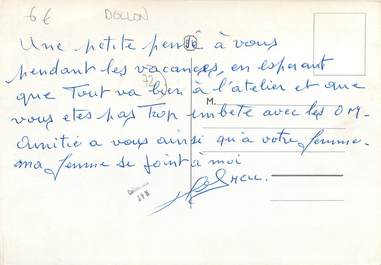 6€ DOLLON
Une petite pensé à vous
pendant les vacances, en esperant
que Tout va bien à l'atelier et que
72
M.
vous etes pas Trop embeté avec les OM-
Amitié a vous ainsi qu'à votre femme-
ma femme se joint à moi